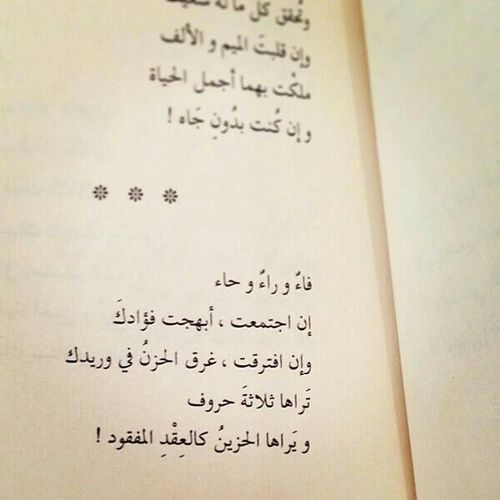 وتُحقق كل ما له سعيت
وإن قلبتَ الميم و الألف
ملكْت بهما أجمل الحياة
و إن كُنت بدُونِ جَاه !
❊ ❊ ❊
فاءٌ و راءٌ و حاء
إن اجتمعت ، أبهجت فؤادكَ
وإن افترقت ، غرق الحزنُ في وريدك
تَراها ثلاثةَ حروف
و يَراها الحزينُ كالعِقْدِ المفقود !